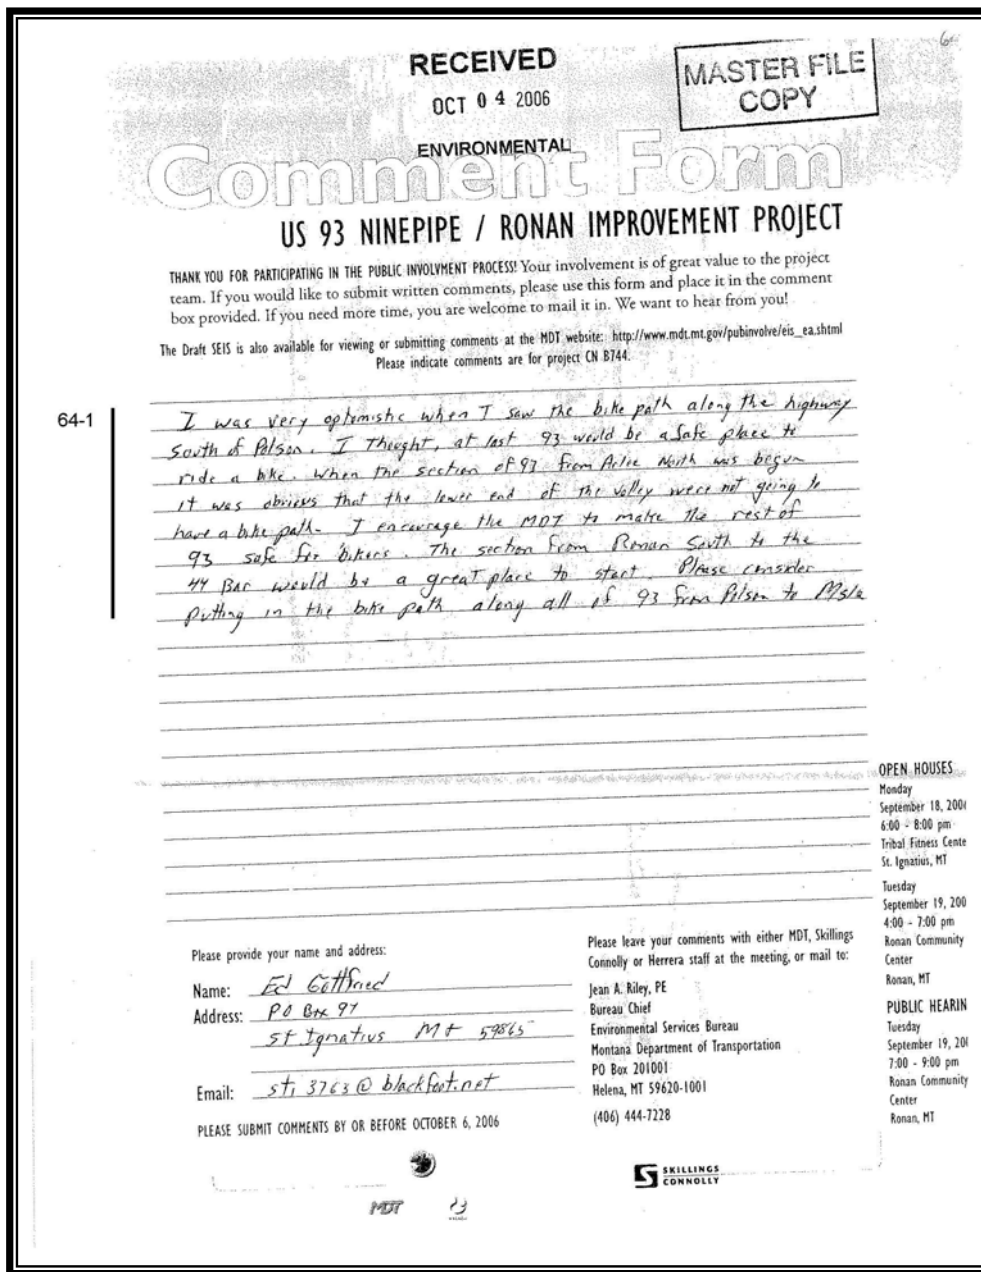 RECEIVED
OCT 04 2006
ENVIRONMENTAL
MASTER FILE
COPY
Comment Form
US 93 NINEPIPE / RONAN IMPROVEMENT PROJECT
THANK YOU FOR PARTICIPATING IN THE PUBLIC INVOLVMENT PROCESS! Your involvement is of great value to the project
team. If you would like to submit written comments, please use this form and place it in the comment
box provided. If you need more time, you are welcome to mail it in. We want to hear from you!
The Draft SEIS is also available for viewing or submitting comments at the MDT website: http://www.mdt.mt.gov/pubinvolve/eis_ea.shtml
Please indicate comments are for project CN B744.
64-1
I was very optomistic when I saw the bike path along the highway
South of Polson. I Thought, at last 93 would be a safe place to
ride a bike. When the section of 93 from Arlee North was begun
it was obvious that the lower end of the valley were not going to
have a bike path. I encourage the MDT to make the rest of
93 safe for bikers. The section from Ronan South to the
44 Bar would be a great place to start. Please consider
putting in the bike path along all of 93 from Polson to Msla
Please provide your name and address:
Name: Ed Gottfried
Address: PO Box 97
St Ignatius Mt 59865
Email: sti3763@blackfoot.net
PLEASE SUBMIT COMMENTS BY OR BEFORE OCTOBER 6, 2006
Please leave your comments with either MDT, Skillings
Connolly or Herrera staff at the meeting, or mail to:
Jean A. Riley, PE
Bureau Chief
Environmental Services Bureau
Montana Department of Transportation
PO Box 201001
Helena, MT 59620-1001
(406) 444-7228
OPEN HOUSES
Monday
September 18, 200
6:00 - 8:00 pm
Tribal Fitness Cente
St. Ignatius, MT
Tuesday
September 19, 200
4:00 - 7:00 pm
Ronan Community
Center
Ronan, MT
PUBLIC HEARIN
Tuesday
September 19, 20
7:00 - 9:00 pm
Ronan Community
Center
Ronan, MT
MDT
SKILLINGS
CONNOLLY